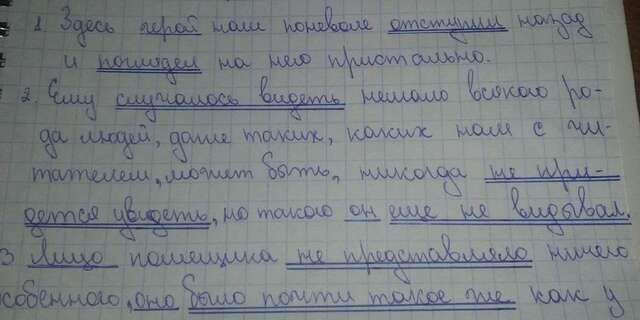 1. Здесь герой наш поневоле отступил назад
и поглядел на него пристально.
2. Ему случалось видеть немало всякого ро-
да людей, даже таких, каких нам с чи-
тателем, может быть, никогда не при-
дется увидеть, но такого он еще не видывал.
3 Лицо помещика не представляло ничего
особенного, оно было почти такое же как у